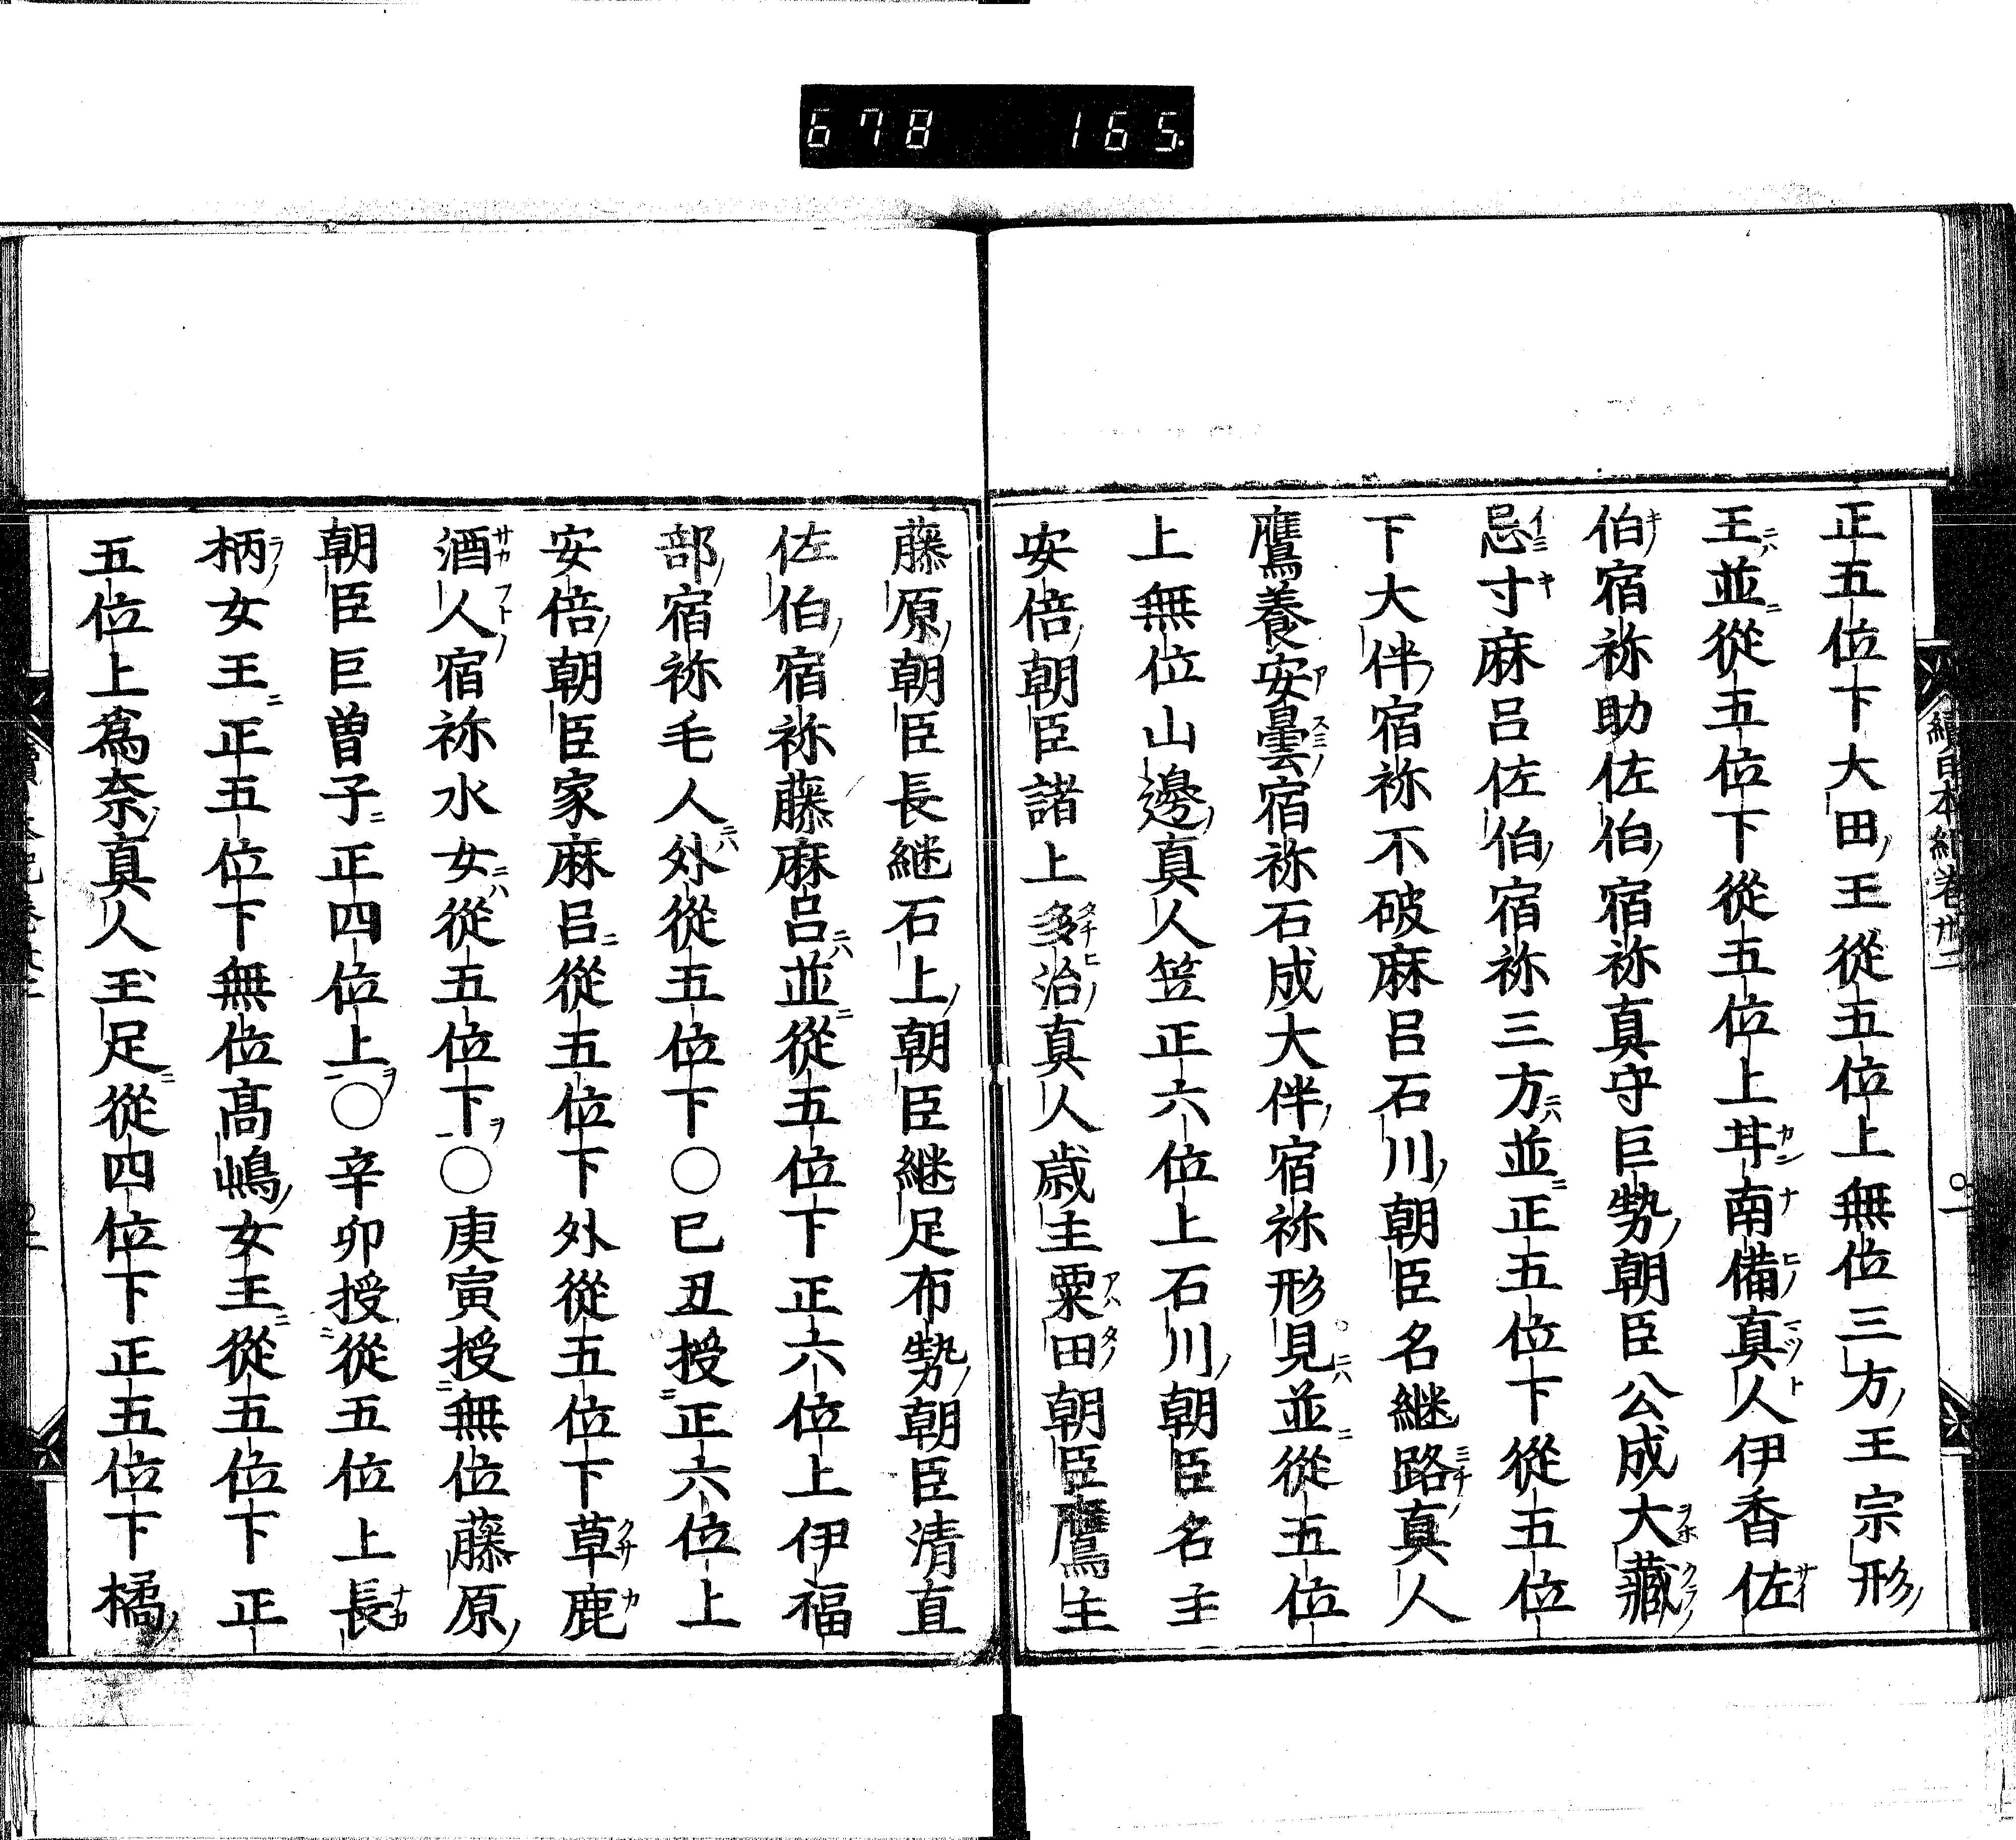 678 165
正五位下大田王從五位上無位三方王宗形
王並從五位下從五位上甘南備真人伊香佐
伯宿祢助佐伯宿祢真守巨勢朝臣公成大藏
忌寸麻呂佐伯宿祢三方並正五位下從五位
下大伴宿祢不破麻呂石川朝臣名継路真人
鷹養安曇宿祢石成大伴宿祢形見並從五位
上無位山邊真人笠正六位上石川朝臣名主
安倍朝臣諸上多治真人歳主粟田朝臣鷹主
藤原朝臣長継石上朝臣継足布勢朝臣清直
佐伯宿祢藤麻呂並從五位下正六位上伊福
部宿祢毛人外從五位下○巳丑授正六位上
安倍朝臣家麻呂從五位下外從五位下草鹿
酒人宿祢水女從五位下○庚寅授無位藤原
朝臣巨曽子正四位上○辛卯授從五位上長
柄女王正五位下無位髙嶋女王從五位下正
五位上為奈真人玉足從四位下正五位下橘
續日本紀卷卅二